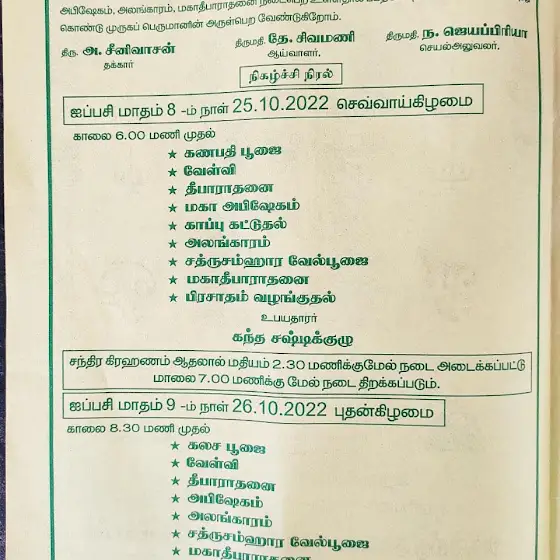 அபிஷேகம், அலங்காரம், மகாதீபாராதனை
கொண்டு முருகப் பெருமானின் அருள்பெற வேண்டுகிறோம்.
திரு. அ. சீனிவாசன் திருமதி. தே. சிவமணி திருமதி. ந. ஜெயப்பிரியா
தக்கார் ஆய்வாளர். செயல்அலுவலர்.
நிகழ்ச்சி நிரல்
ஐப்பசி மாதம் 8 -ம் நாள் 25.10.2022 செவ்வாய்கிழமை
காலை 6.00 மணி முதல்
★ கணபதி பூஜை
★ வேள்வி
★ தீபாராதனை
★ மகா அபிஷேகம்
★ காப்பு கட்டுதல்
★ அலங்காரம்
★ சத்ருசம்ஹார வேல்பூஜை
★ மகாதீபாராதனை
★ பிரசாதம் வழங்குதல்
உபயதாரர்
கந்த சஷ்டிக்குழு
சந்திர கிரஹணம் ஆதலால் மதியம் 2.30 மணிக்குமேல் நடை அடைக்கப்பட்டு
மாலை 7.00 மணிக்கு மேல் நடை திறக்கப்படும்.
ஐப்பசி மாதம் 9 -ம் நாள் 26.10.2022 புதன்கிழமை
காலை 8.30 மணி முதல்
★ கலச பூஜை
★ வேள்வி
★ தீபாராதனை
★ அபிஷேகம்
★ அலங்காரம்
★ சத்ருசம்ஹார வேல்பூஜை
★ மகாதீபாராதனை